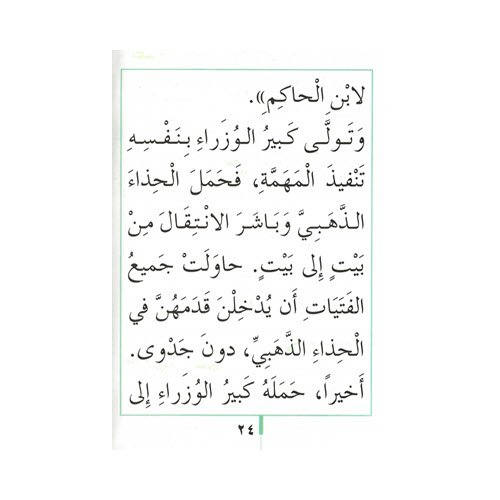 لابْنِ الْحاكِمِ)».
وَتَولَّى كَبيرُ الوُزَراءِ بِنَفْسِهِ
تَنْفيذَ الْمَهَمَّةِ، فَحَمَلَ الْحِذاءَ
الذَّهَبِيَّ وَبَاشَرَ الانْتِقَالَ مِنْ
بَيْتٍ إلى بَيْتٍ. حاوَلَتْ جَميعُ
الفَتَيَاتِ أَن يُدْخِلْنَ قَدَمَهُنَّ في
الْحِذاءِ الذَّهَبِيِّ، دونَ جَدْوى.
أَخيراً، حَمَلَهُ كَبيرُ الوُزَراءِ إلى
٢٤